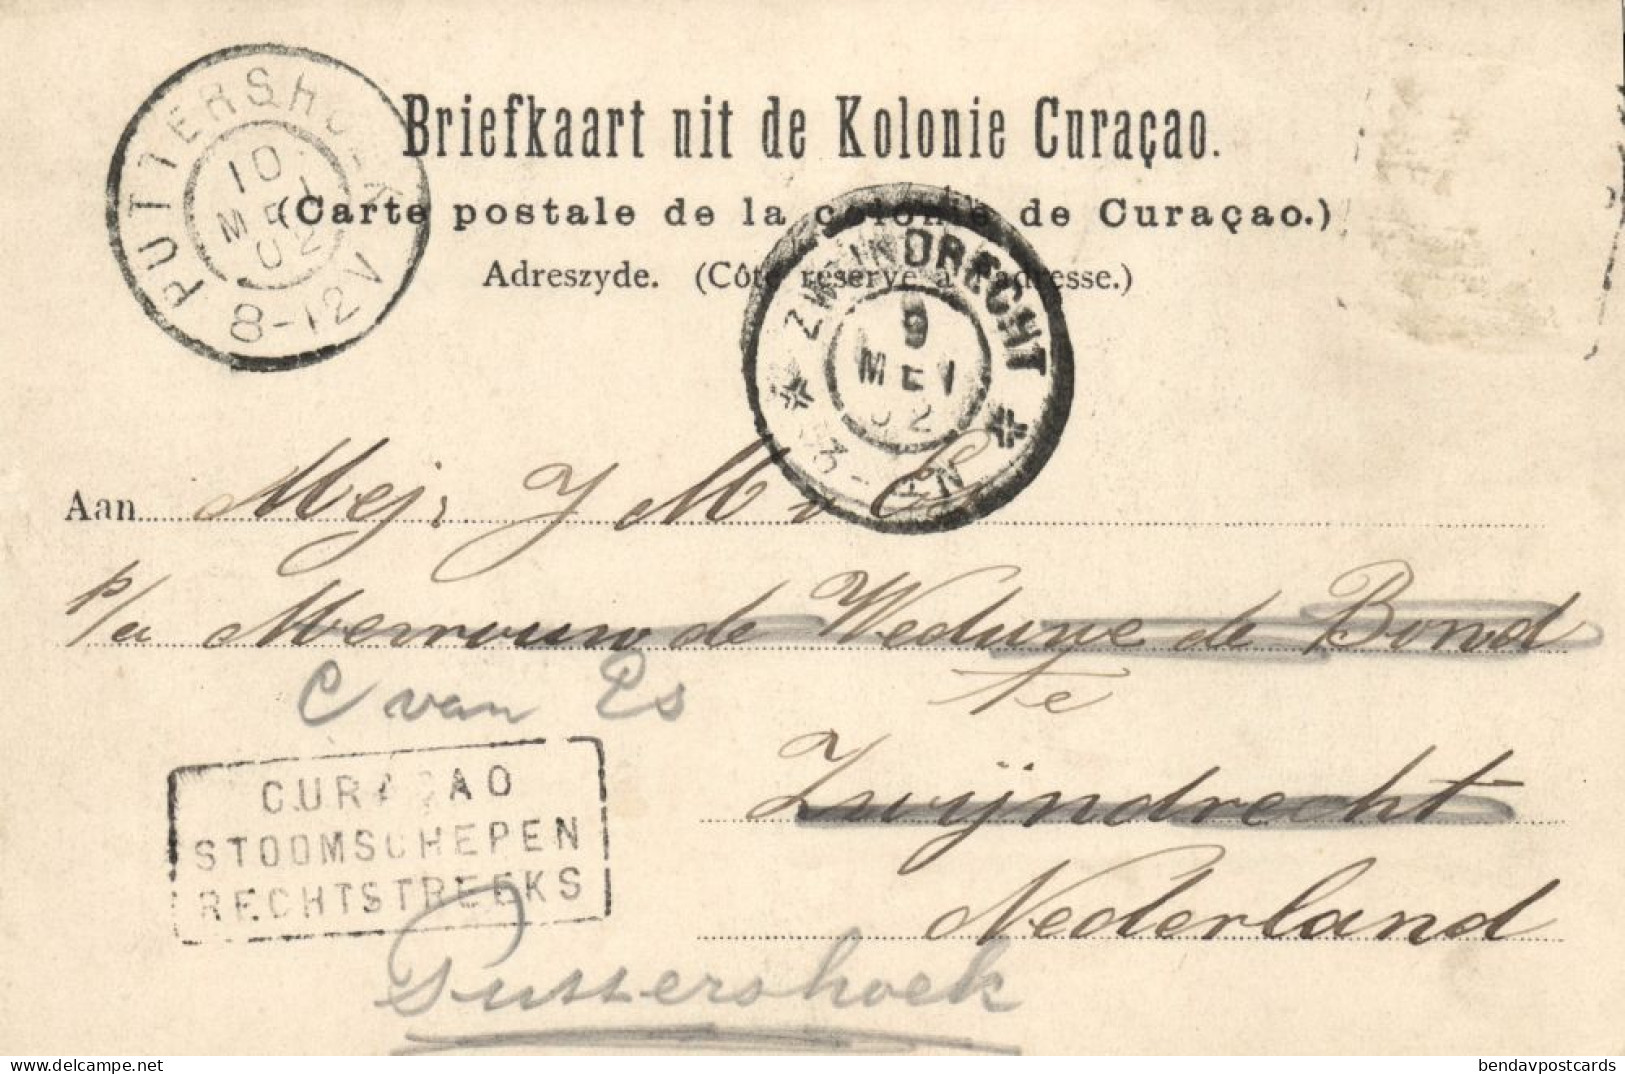 PUTTERSHOEK
10
MEI
02
8-12V
Briefkaart uit de Kolonie Curaçao.
(Carte postale de la colonie de Curaçao.)
Adreszyde. (Côté réservé à l'adresse.)
ZWIJNDRECHT
9
MEI
02
Aan Mej: J M v Es
p/a Mevrouw de Weduwe de Bond
te
C van Es
Zwijndrecht
CURAÇAO
STOOMSCHEPEN
RECHTSTREEKS
Nederland
Puttershoek
bendavpostcards